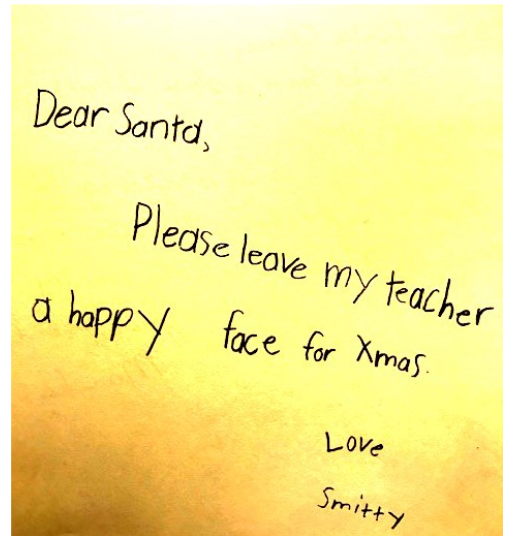 Dear Santa,
Please leave my teacher
a happy face for Xmas.
Love
Smitty